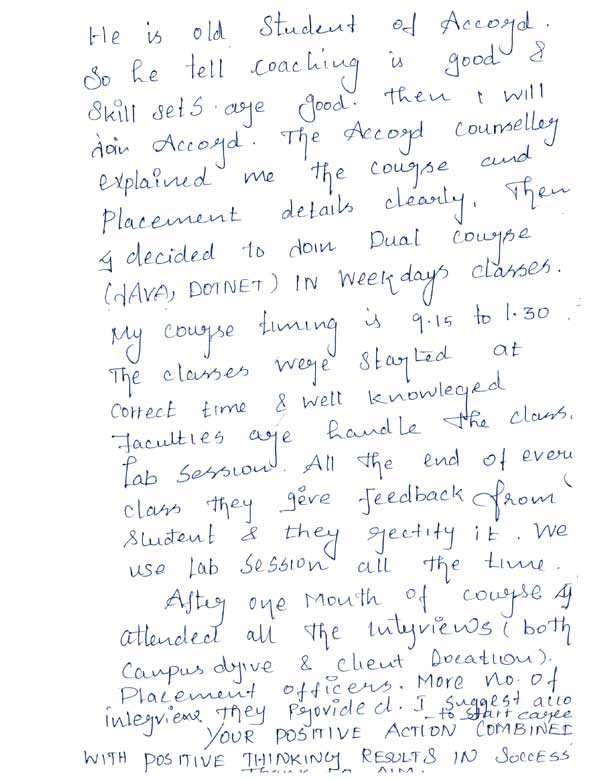 He is old Student of Accord.
So he tell coaching is good &
Skill sets are good. Then I will
join Accord. The Accord Counselley
explained me the course and
Placement details clearly. Then
I decided to Join Dual course
(JAVA, DOTNET) IN Weekdays classes.
My course timing is 9.15 to 1.30.
The classes were Started at
correct time & well knowleged
Faculties are handle the class.
Lab session. All the end of every
class they give feedback from
Student & they rectify it. We
use lab session all the time.
After one Month of course I
attended all the Interviews (both
Campus drive & client Location).
Placement officers. More no. of
interview they Provided. I suggest also
to start caree
YOUR POSITIVE ACTION COMBINED
WITH POSITIVE THINKING RESULTS IN SUCCESS